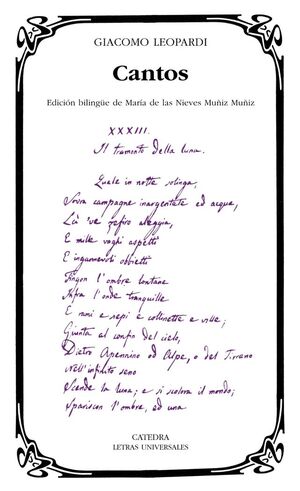 GIACOMO LEOPARDI
Cantos
Edición bilingüe de María de las Nieves Muñiz Muñiz
XXXIII.
Il tramonto della luna.
Quale in notte solinga,
Sovra campagne inargentate ed acque,
Là 've zefiro aleggia,
E mille vaghi aspetti
E ingannevoli obbietti
Fingon l'ombre lontane
Infra l'onde tranquille
E rami e siepi e collinette e ville;
Giunta al confin del cielo,
Dietro Apennino od Alpe, o del Tirreno
Nell'infinito seno
Scende la luna; e si scolora il mondo;
Spariscon l'ombre, ed una
CATEDRA
LETRAS UNIVERSALES